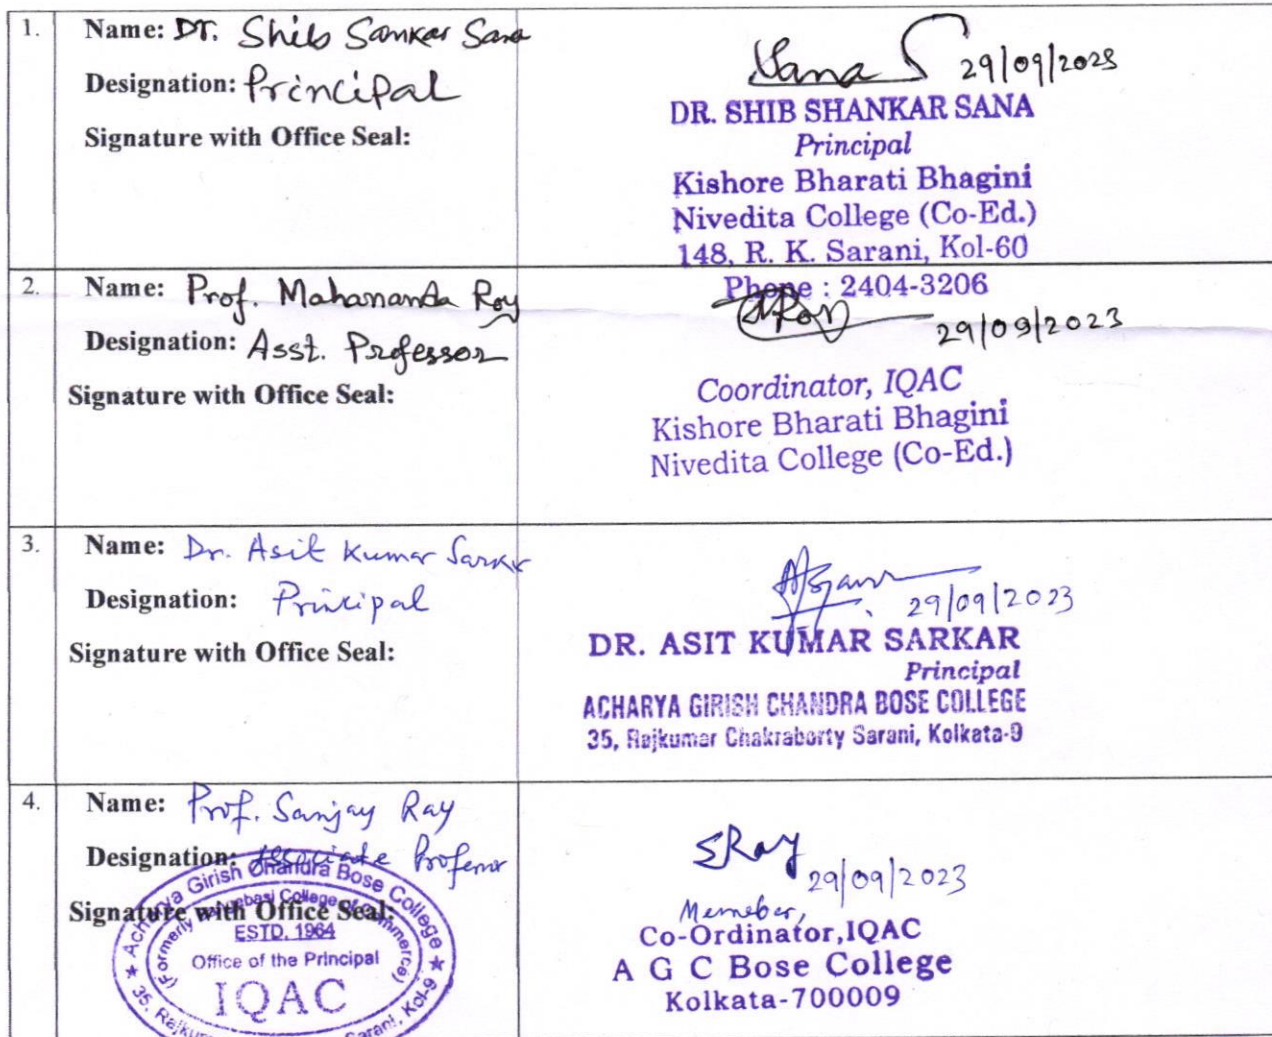 1.
Name: Dr. Shib Sankar Sana
Designation: Principal
Signature with Office Seal:
Sana S 29/09/2023
DR. SHIB SHANKAR SANA
Principal
Kishore Bharati Bhagini
Nivedita College (Co-Ed.)
148, R. K. Sarani, Kol-60
Phone : 2404-3206
2.
Name: Prof. Mahananda Roy
Designation: Asst. Professor
Signature with Office Seal:
MRoy 29/09/2023
Coordinator, IQAC
Kishore Bharati Bhagini
Nivedita College (Co-Ed.)
3.
Name: Dr. Asit Kumar Sarkar
Designation: Principal
Signature with Office Seal:
29/09/2023
DR. ASIT KUMAR SARKAR
Principal
ACHARYA GIRISH CHANDRA BOSE COLLEGE
35, Rajkumar Chakraborty Sarani, Kolkata-9
4.
Name: Prof. Sanjay Ray
Designation: Associate Professor
Signature with Office Seal:
Acharya Girish Chandra Bose College
(Formerly Bangabasi College of Commerce)
ESTD. 1964
Office of the Principal
IQAC
35, Rajkum Sarani, Kol-9
SRay 29/09/2023
Memeber,
Co-Ordinator,IQAC
A G C Bose College
Kolkata-700009